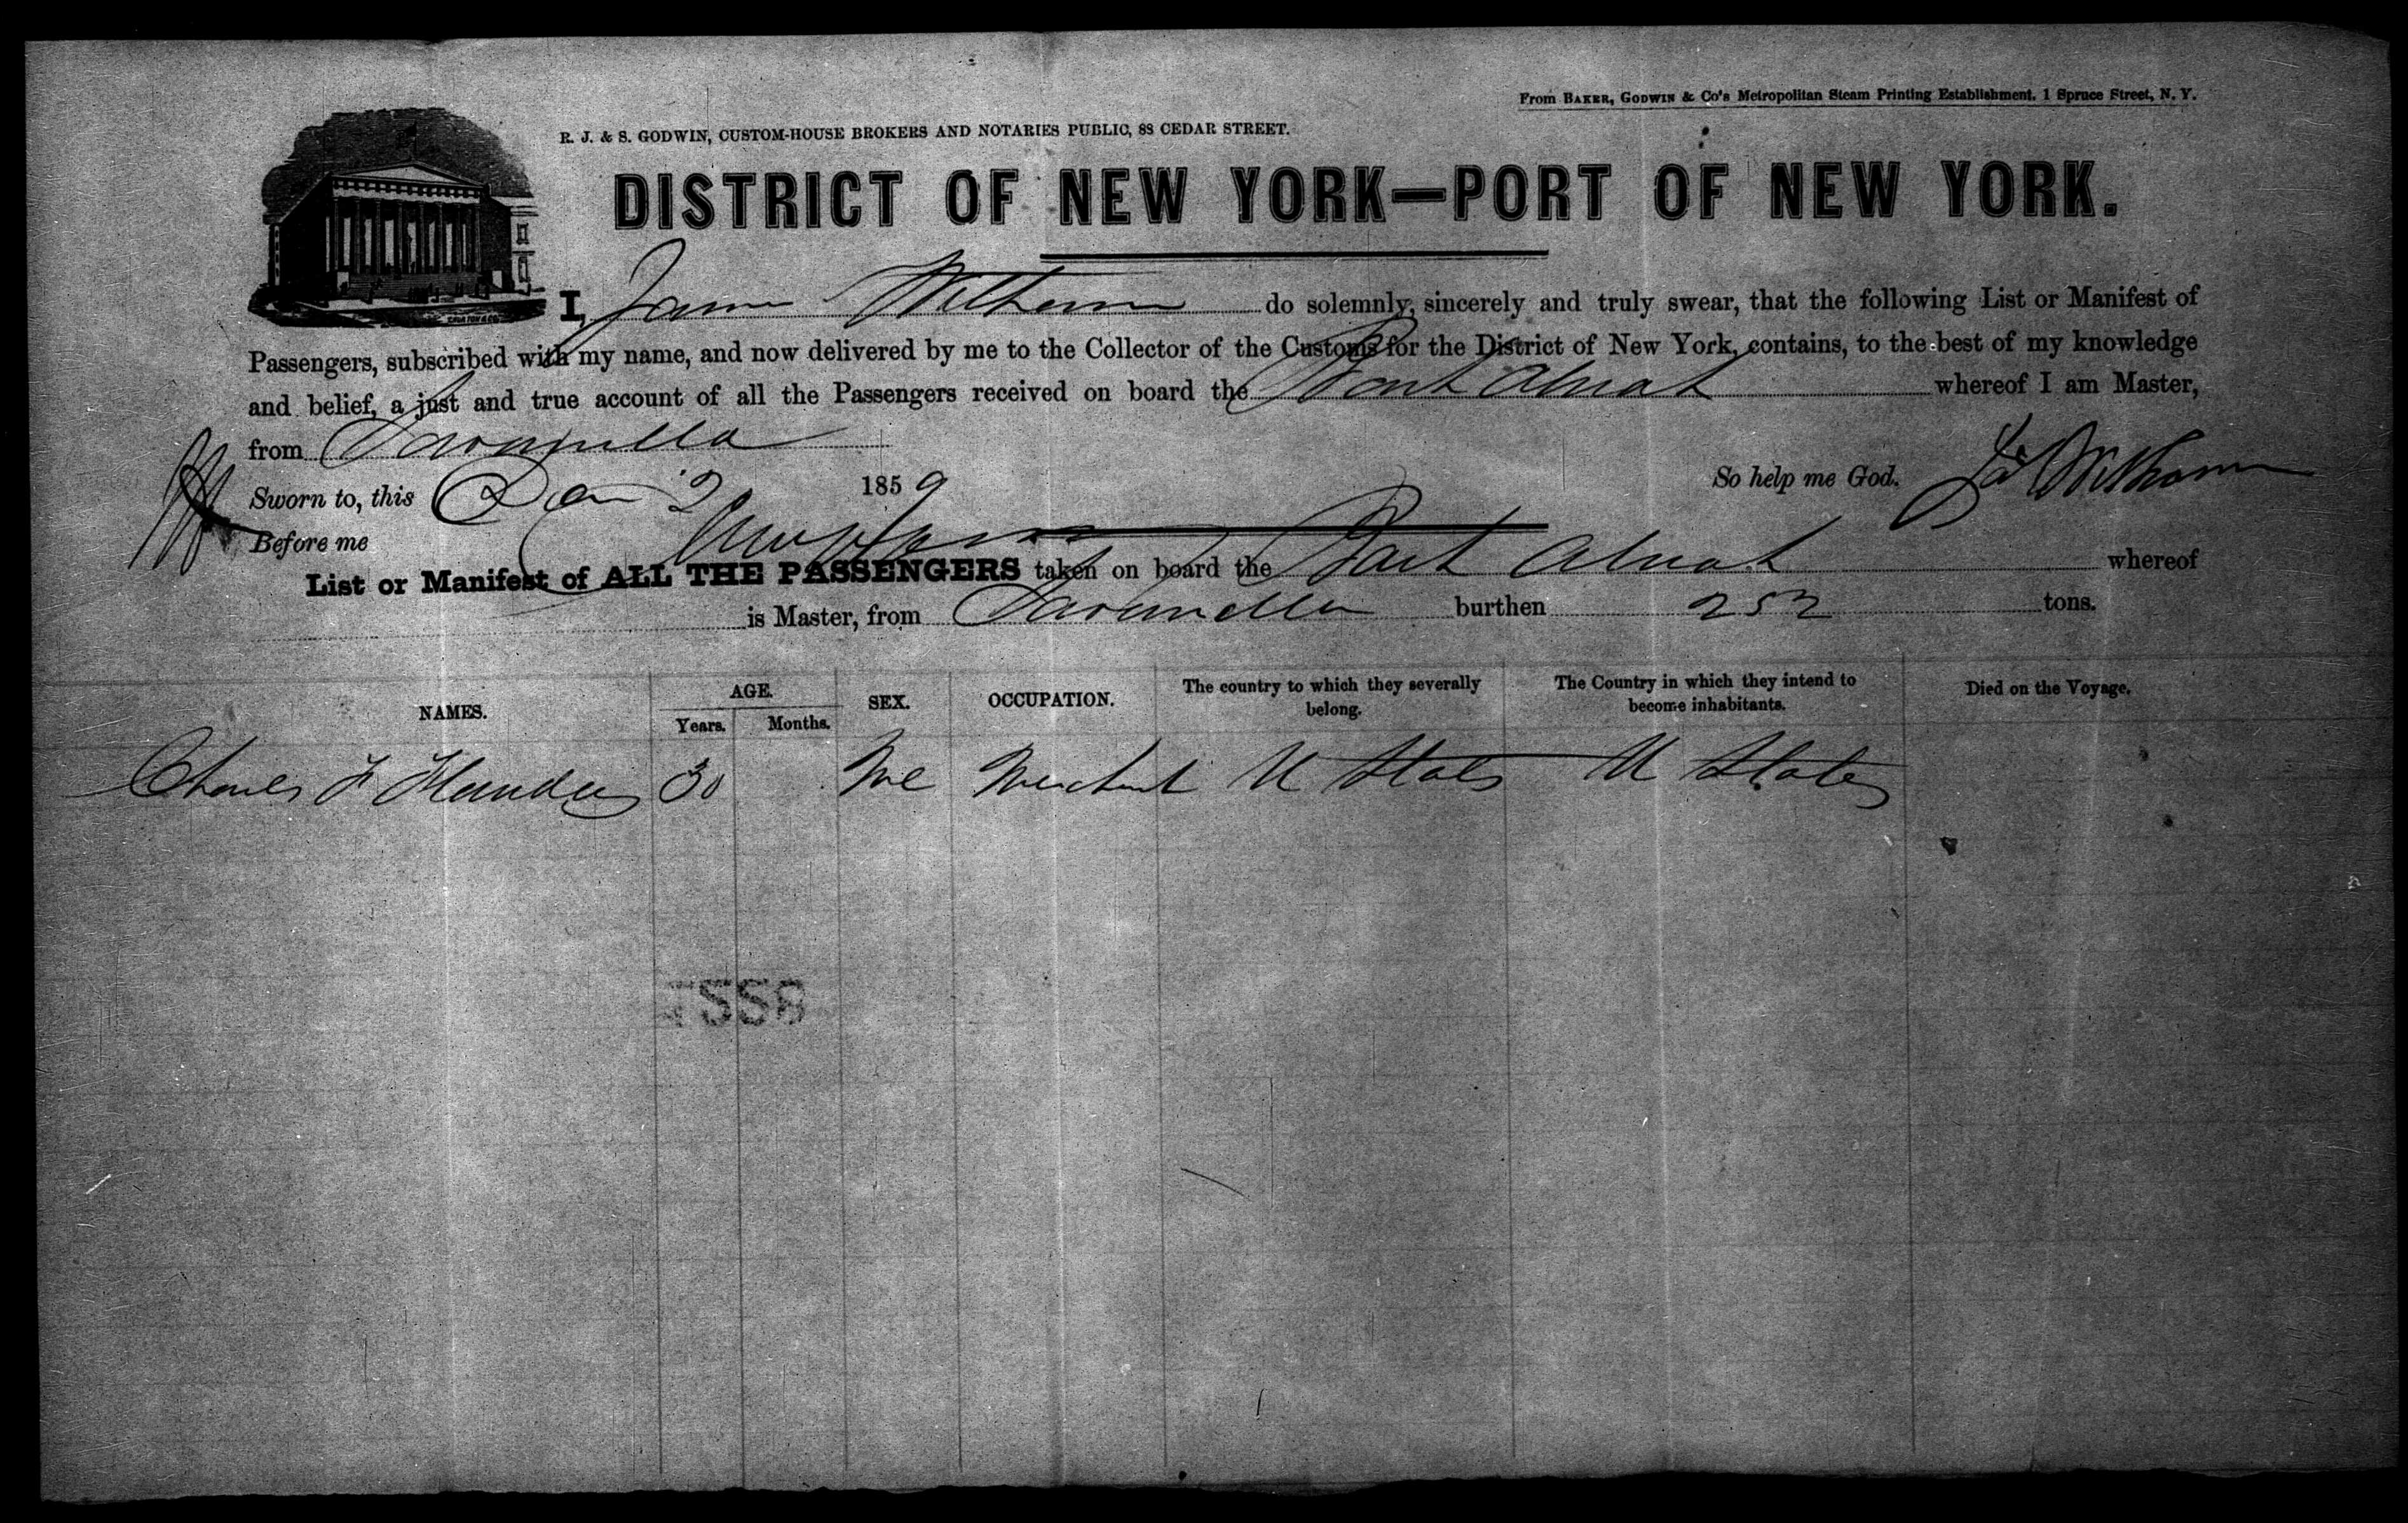 From BAKER, GODWIN & Co's Metropolitan Steam Printing Establishment, 1 Spruce Street, N. Y.
R. J. & S. GODWIN, CUSTOM-HOUSE BROKERS AND NOTARIES PUBLIC, 88 CEDAR STREET.
DISTRICT OF NEW YORK—PORT OF NEW YORK.
I, James Witham do solemnly, sincerely and truly swear, that the following List or Manifest of
Passengers, subscribed with my name, and now delivered by me to the Collector of the Customs for the District of New York, contains, to the best of my knowledge
and belief, a just and true account of all the Passengers received on board the Bark whereof I am Master,
from Savanilla
Sworn to, this 2 1859 So help me God. Jas Witham
Before me
List or Manifest of ALL THE PASSENGERS taken on board the Bark whereof
is Master, from Savanilla burthen 252 tons.
NAMES. AGE. Years. Months. SEX. OCCUPATION. The country to which they severally belong. The Country in which they intend to become inhabitants. Died on the Voyage.
Charles F Flanders 30 Me Merchant U States U States